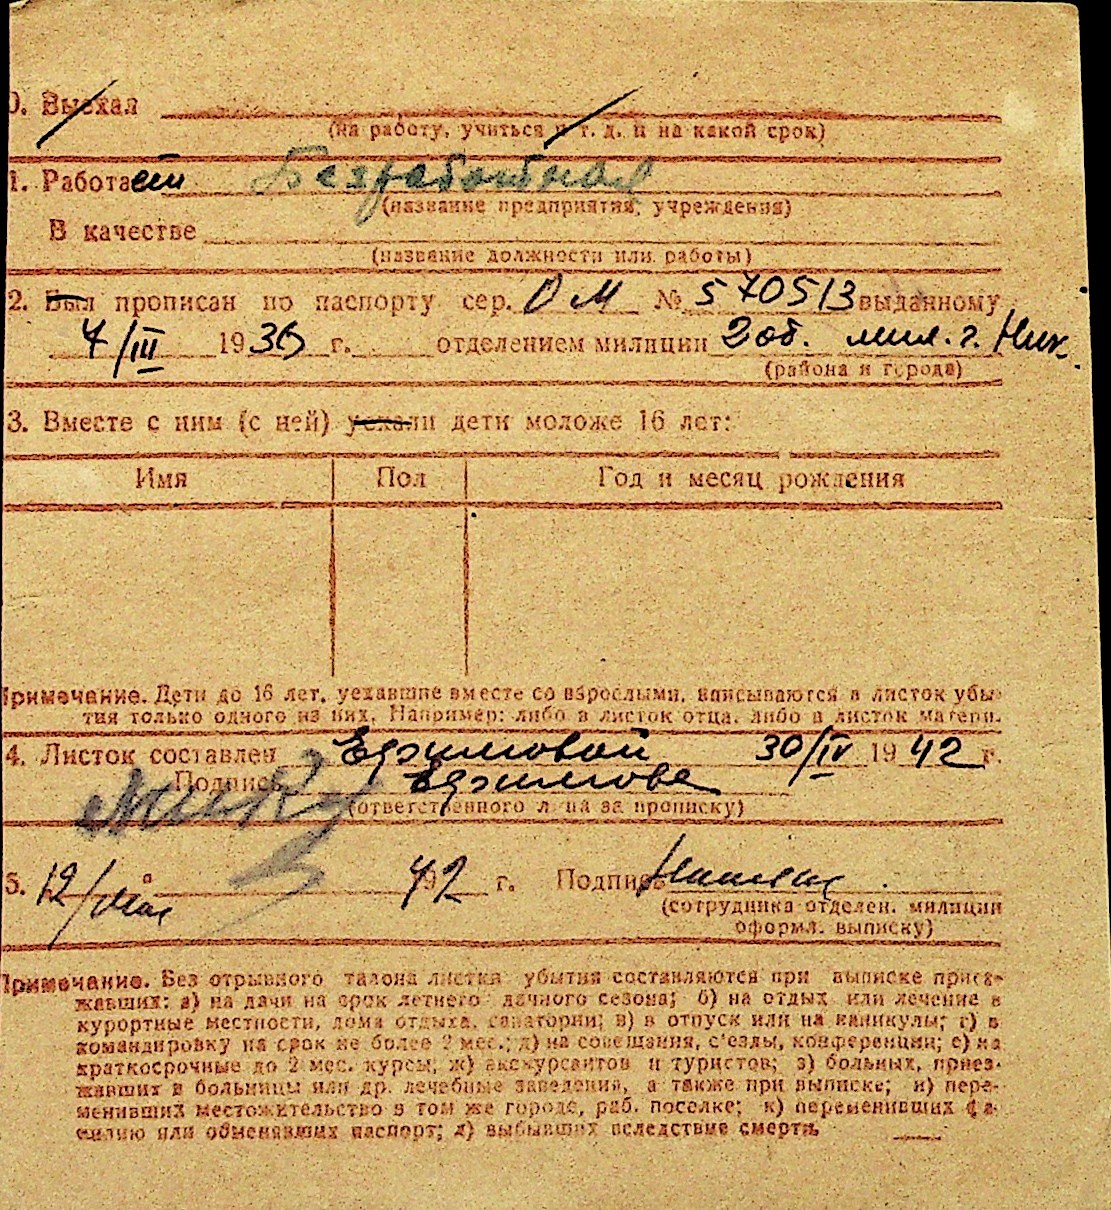 0. Выехал
(на работу, учиться и т. д. и на какой срок)
1. Работает Безработная
(название предприятия, учреждения)
В качестве
(название должности или работы)
2. Был прописан по паспорту сер. ОМ № 570513 выданному
7/III 1936 г. отделением милиции 2 об. мил. г. Ник.
(района и города)
3. Вместе с ним (с ней) уехали дети моложе 16 лет:
Имя Пол Год и месяц рождения
Примечание. Дети до 16 лет, уехавшие вместе со взрослыми, вписываются в листок убы-
тия только одного из них. Например: либо в листок отца, либо в листок матери.
4. Листок составлен Ефимовой 30/IV 1942 г.
Подпись Ефимова
(ответственного л на за прописку)
5. 12/мая 42 г. Подпись
(сотрудника отделен. милиции
оформл. выписку)
Примечание. Без отрывного талона листка убытия составляются при выписке приез-
жавших: а) на дачи на срок летнего дачного сезона; б) на отдых или лечение в
курортные местности, дома отдыха, санатории; в) в отпуск или на каникулы; г) в
командировку на срок не более 2 мес.; д) на совещания, с'езды, конференции; е) на
краткосрочные до 2 мес. курсы; ж) экскурсантов и туристов; з) больных, приез-
жавших в больницы или др. лечебные заведения, а также при выписке; и) пере-
менивших местожительство в том же городе, раб. поселке; к) переменивших фа-
милию или обменявших паспорт; л) выбывших вследствие смерти.